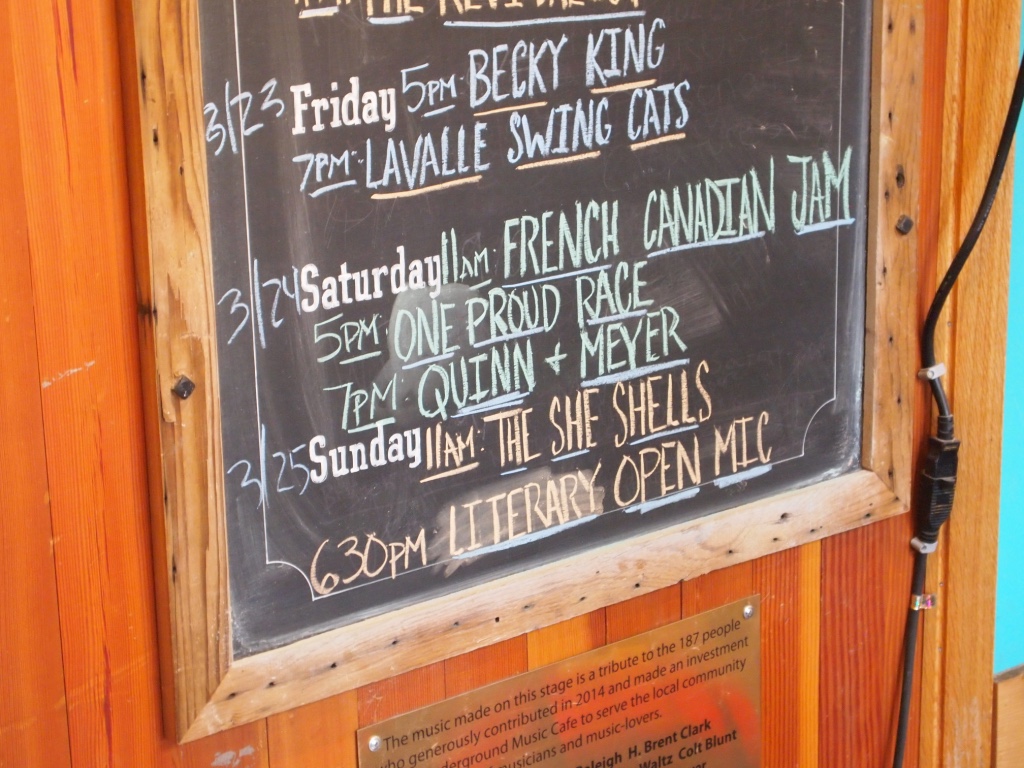 THE REVIVALISTS
3/23 Friday 5PM: BECKY KING
7PM: LAVALLE SWING CATS
3/24 Saturday 11AM: FRENCH CANADIAN JAM
5PM: ONE PROUD RACE
7PM: QUINN + MEYER
3/25 Sunday 11AM: THE SHE SHELLS
630PM LITERARY OPEN MIC
The music made on this stage is a tribute to the 187 people
who generously contributed in 2014 and made an investment
Music Cafe to serve the local community
musicians and music-lovers.
H. Brent Clark
Waltz Colt Blunt